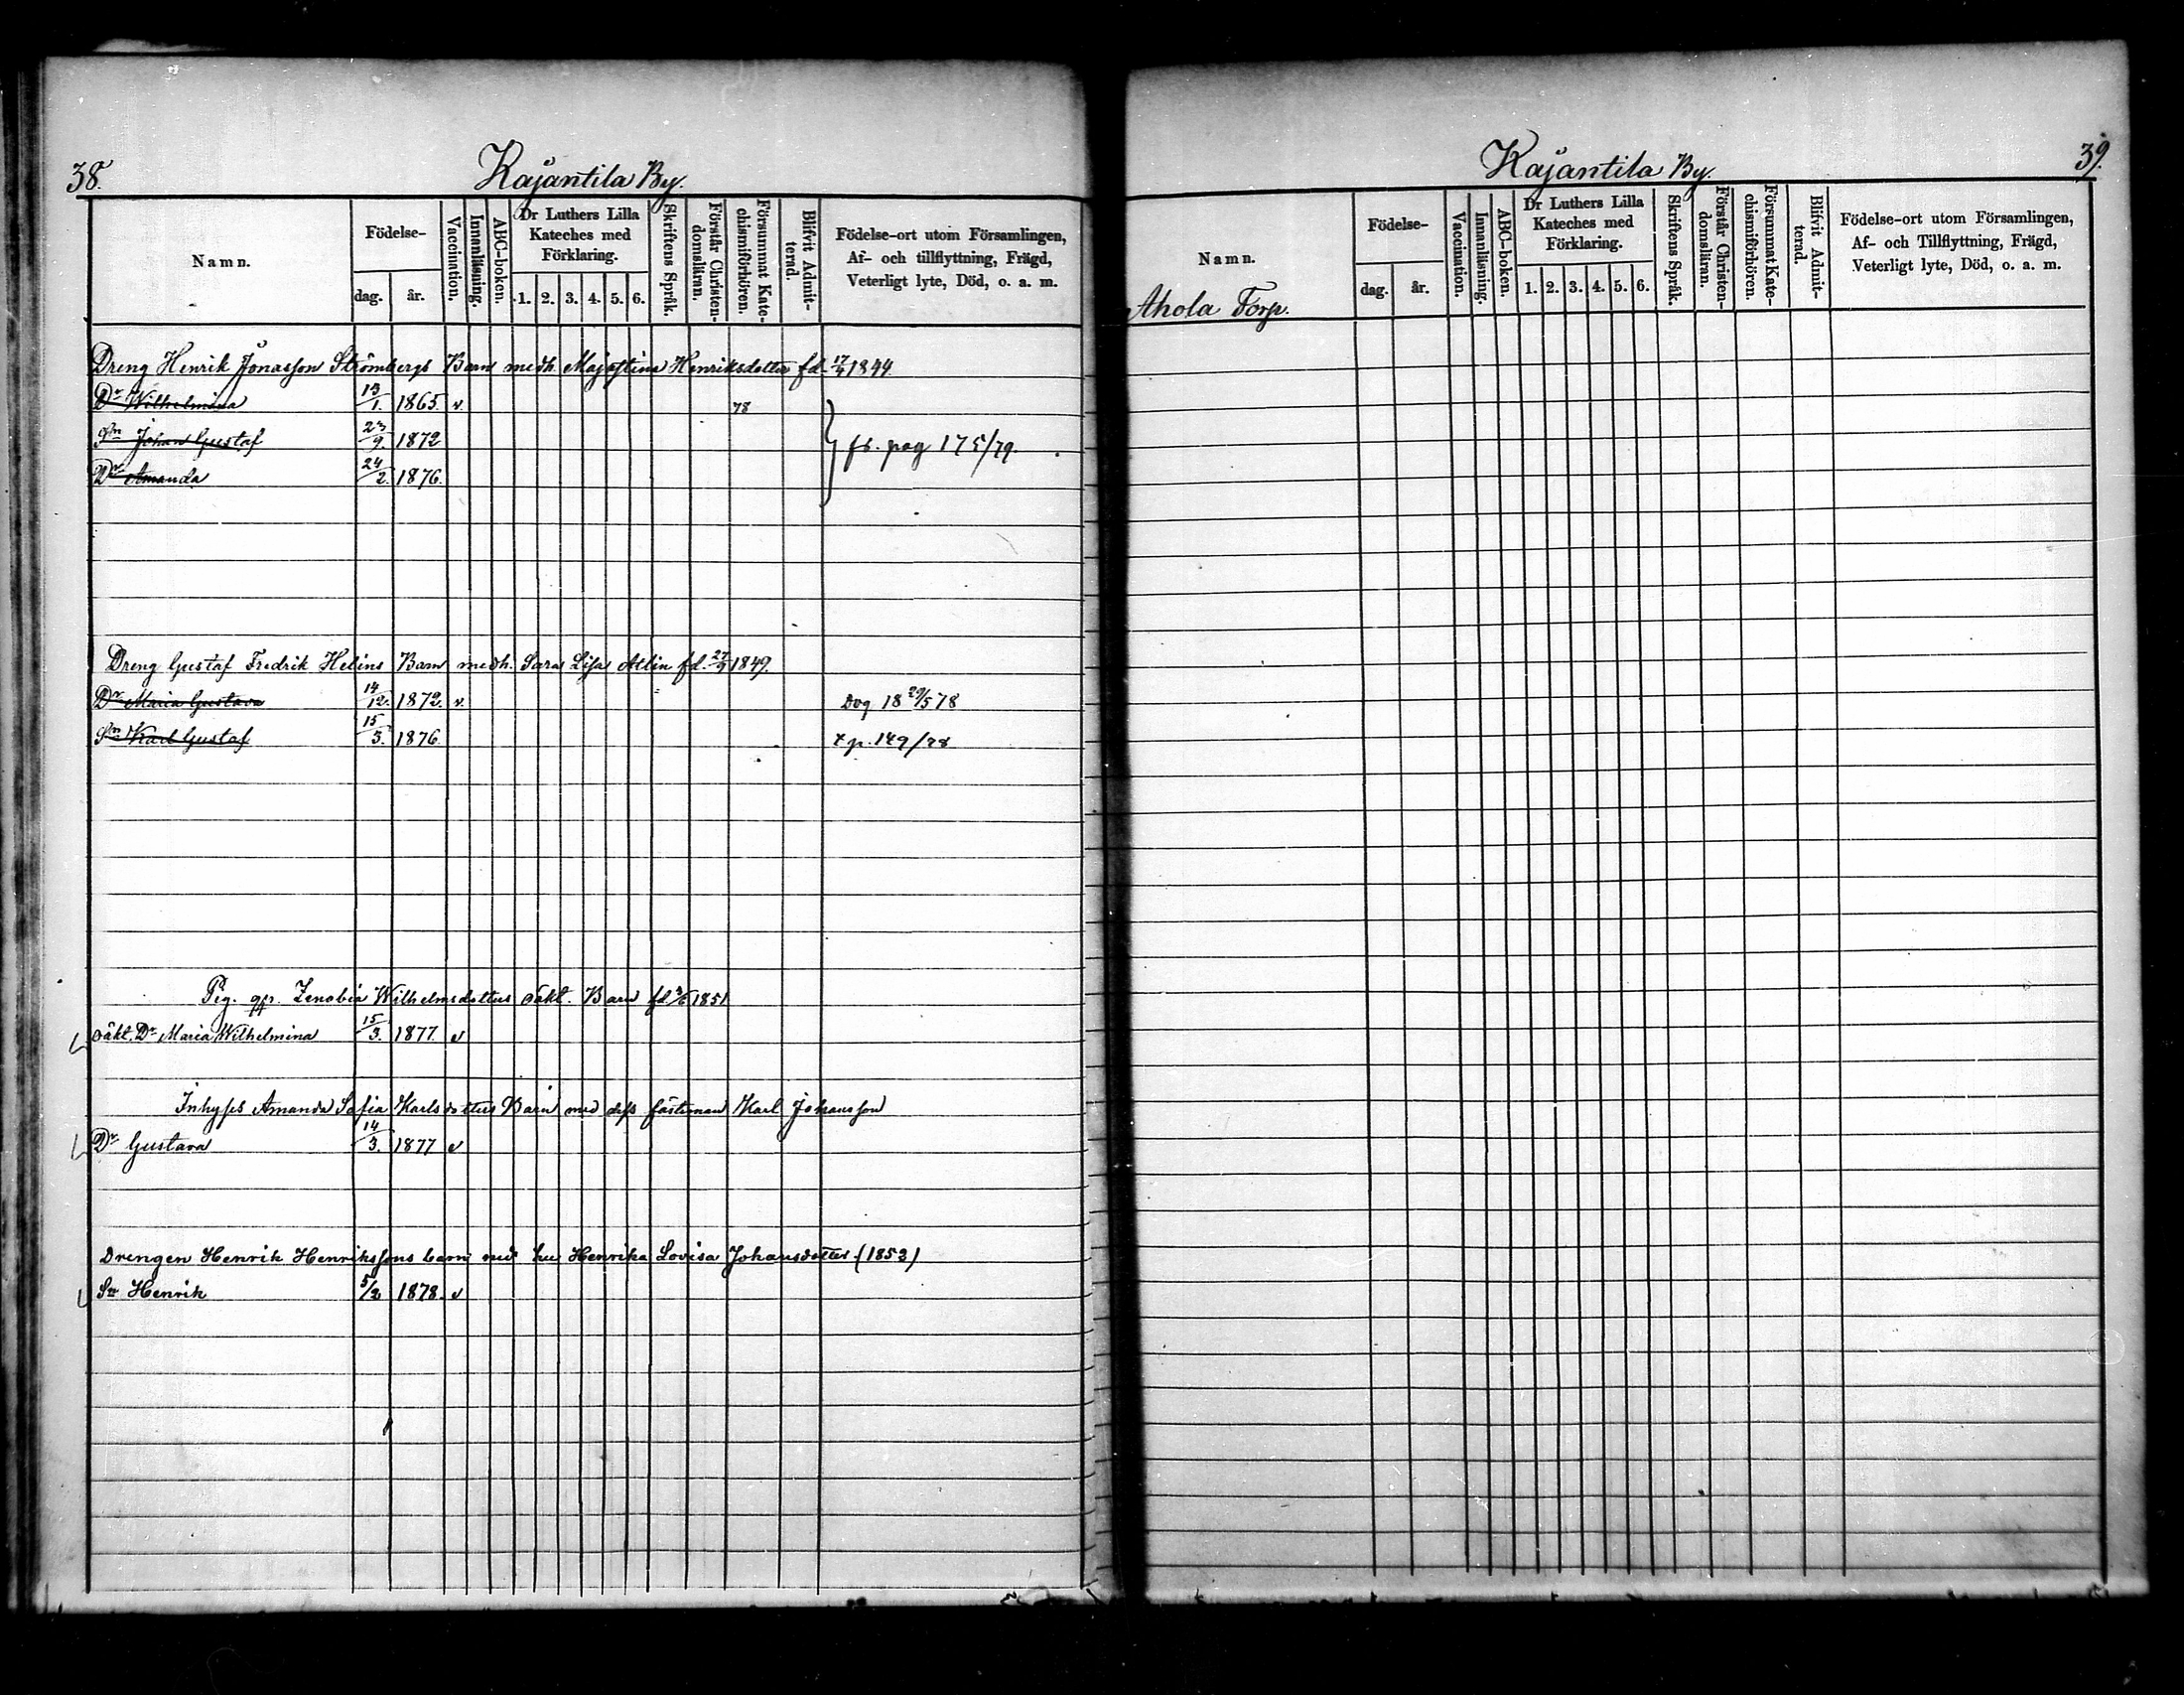 38.
Kajantila By.
Namn.
Födelse-
dag.
år.
Vaccination.
Innanläsning.
ABC-boken.
Dr Luthers Lilla
Kateches med
Förklaring.
1. 2. 3. 4. 5. 6.
Skriftens Språk.
Förstår Christen-
domsläran.
Försummat Kate-
chismiförhören.
Blifvit Admit-
terad.
Födelse-ort utom Församlingen,
Af- och tillflyttning, Frägd,
Veterligt lyte, Död, o. a. m.
Dreng Henrik Jonasson Strömbergs Barn medh. Maja Stina Henriksdotter fd. 1844
Dr Wilhelmina 13/1. 1865. v. 78
Sn Johan Gustaf 23/9. 1872
fb. pag 175/79.
Dr Amanda 24/2. 1876.
Dreng Gustaf Fredrik Helins Barn medh. Sara Lisa Allin fd. 1849.
Dr Maria Gustava 14/12. 1872. v. Dog 18 29/5 78
Sn Karl Gustaf 15/5. 1876. p. 149/78
Pig. Zenobia Wilhelmsdotters oäkt. Barn fd 1851
oäkt. Dr Maria Wilhelmina 15/3. 1877. v
Inhyses Amanda Sofia Karlsdotters Barn med dess fästeman Karl Johansson
Dr Gustava 14/3. 1877 v
Drengen Henrik Henrikssons barn med hu Henrika Lovisa Johansdotter (1853)
Sn Henrik 5/2 1878. v
39.
Kajantila By.
Namn.
Ahola Torp.
Födelse-
dag.
år.
Vaccination.
Innanläsning.
ABC-boken.
Dr Luthers Lilla
Kateches med
Förklaring.
1. 2. 3. 4. 5. 6.
Skriftens Språk.
Förstår Christen-
domsläran.
Försummat Kate-
chismiförhören.
Blifvit Admit-
terad.
Födelse-ort utom Församlingen,
Af- och Tillflyttning, Frägd,
Veterligt lyte, Död, o. a. m.